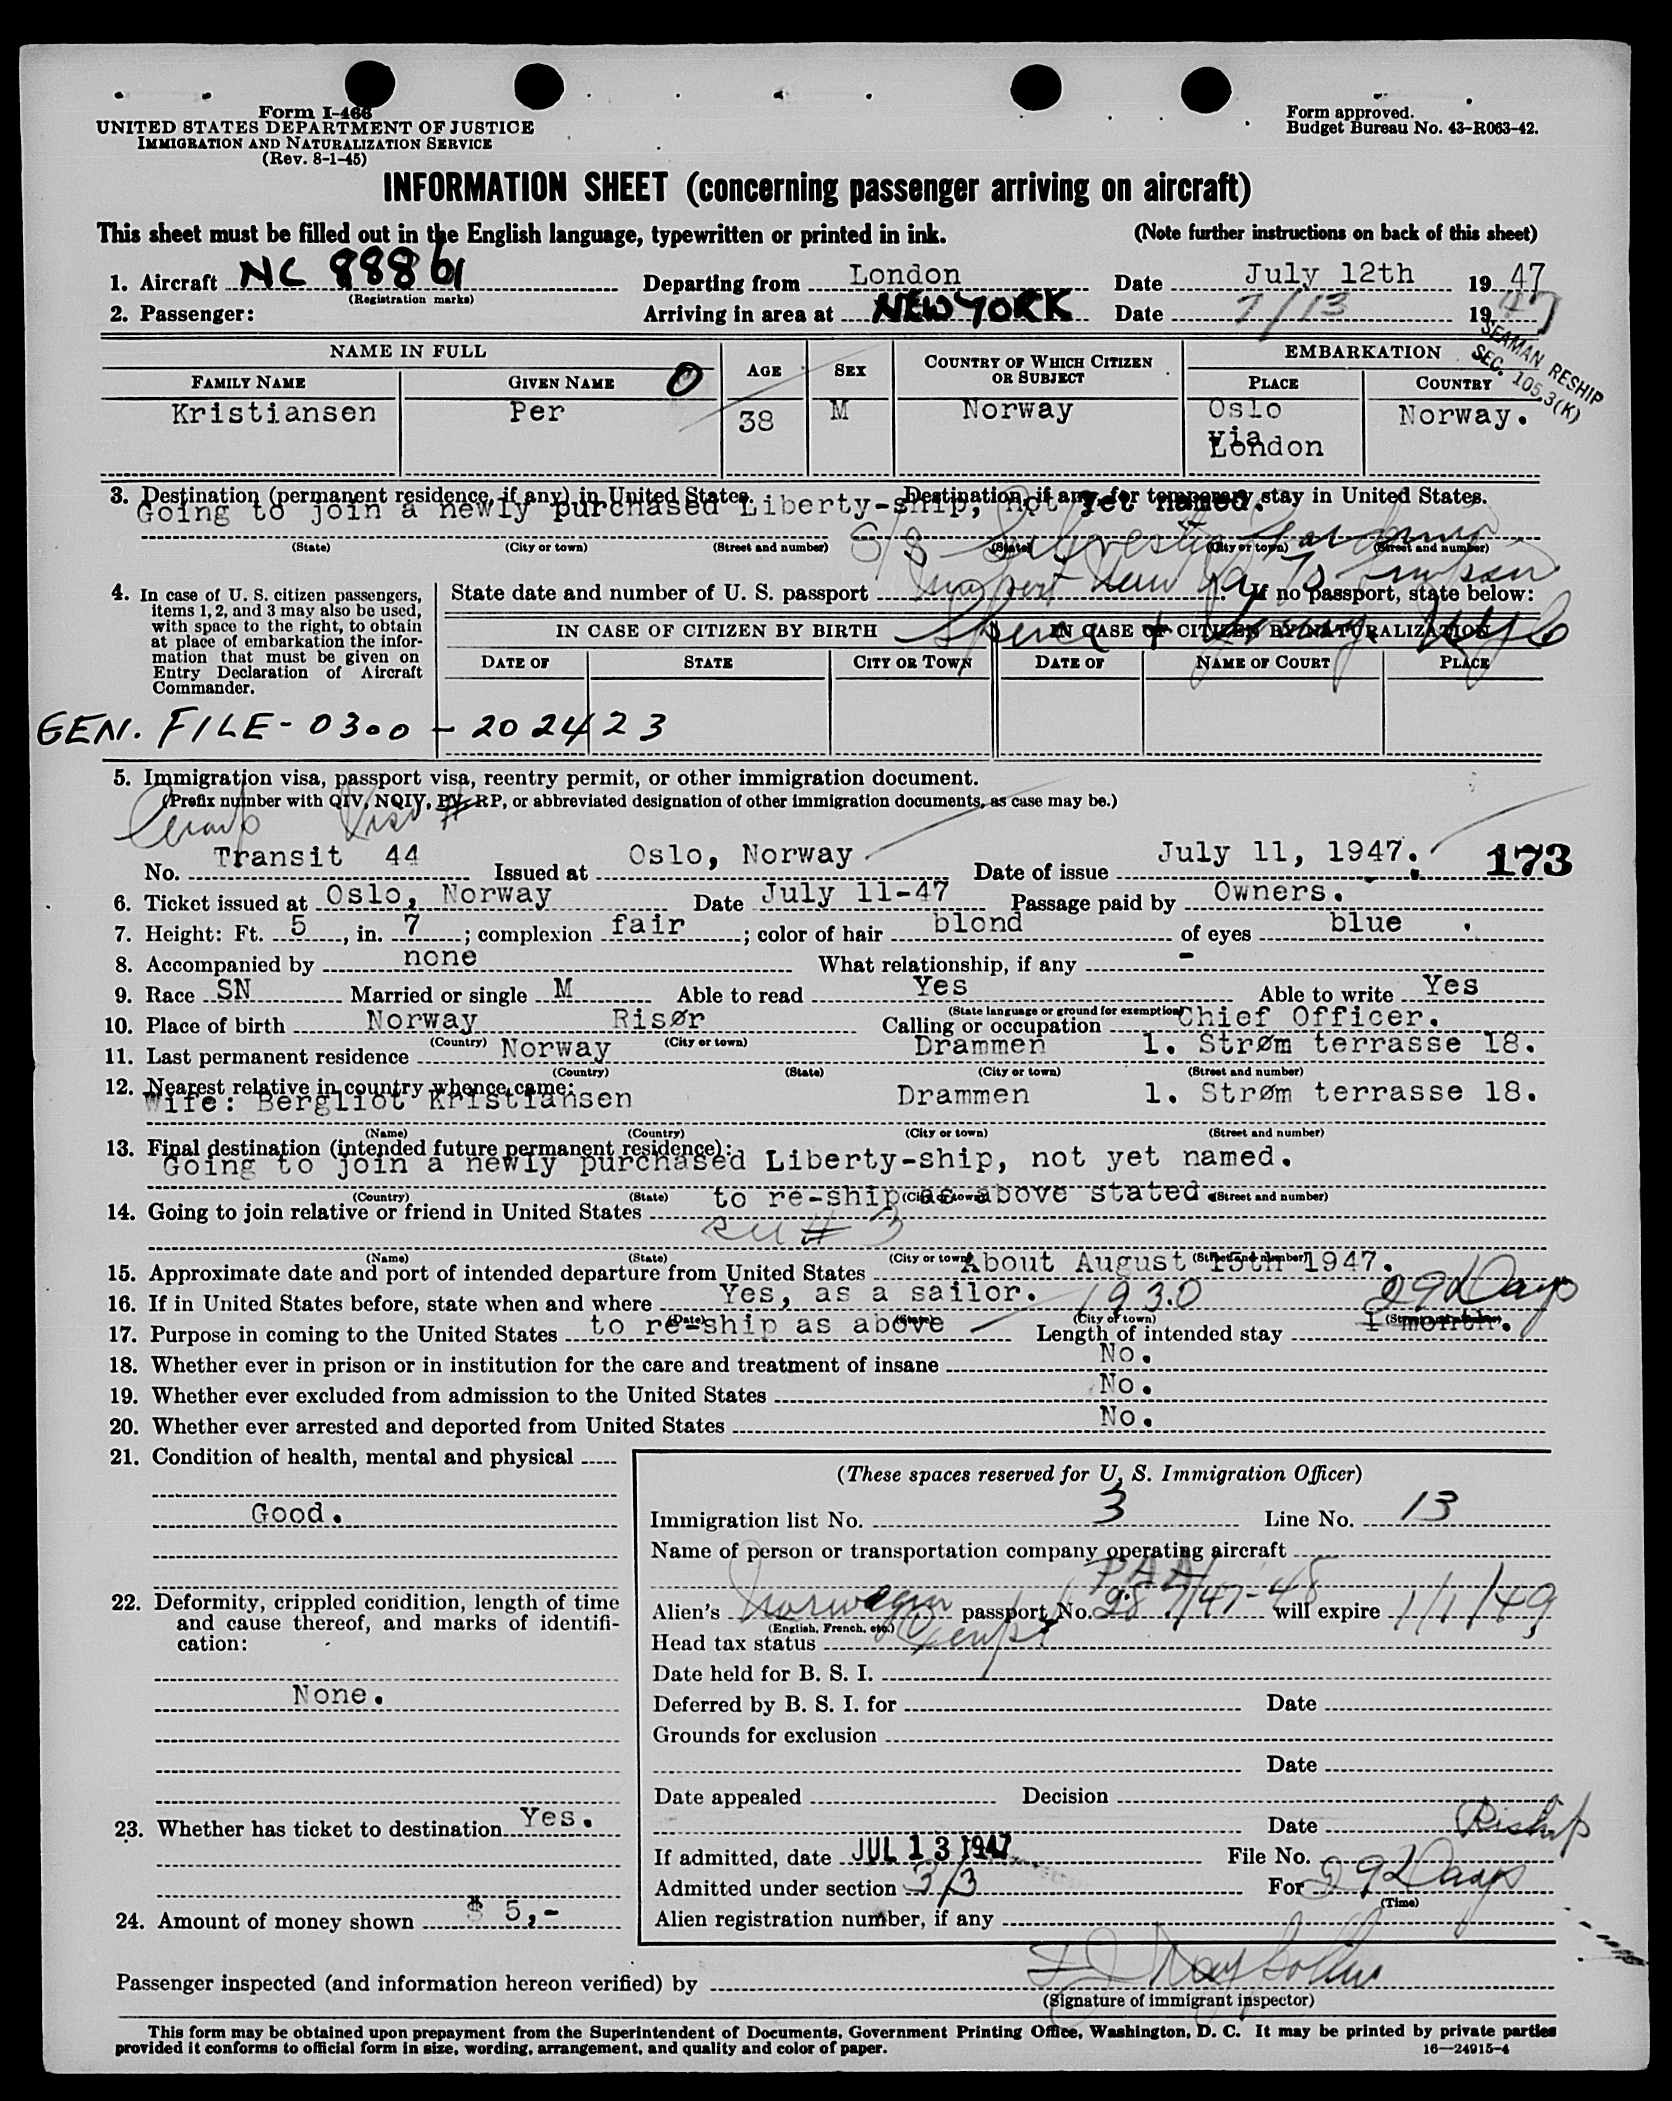 Form I-466
UNITED STATES DEPARTMENT OF JUSTICE
IMMIGRATION AND NATURALIZATION SERVICE
(Rev. 8-1-45)
Form approved.
Budget Bureau No. 43-R063-42.
INFORMATION SHEET (concerning passenger arriving on aircraft)
This sheet must be filled out in the English language, typewritten or printed in ink. (Note further instructions on back of this sheet)
1. Aircraft NC 88861 Departing from London Date July 12th 1947
(Registration marks)
2. Passenger: Arriving in area at NEW YORK Date 7/13 1947
SEAMAN RESHIP
SEC. 105.3(K)
NAME IN FULL AGE SEX COUNTRY OF WHICH CITIZEN OR SUBJECT EMBARKATION
FAMILY NAME GIVEN NAME O PLACE COUNTRY
Kristiansen Per 38 M Norway Oslo Norway.
via
London
3. Destination (permanent residence, if any) in United States. Destination, if any, for temporary stay in United States.
Going to join a newly purchased Liberty-ship, not yet named.
S/S
(State) (City or town) (Street and number) (State) (City or town) (Street and number)
4. In case of U. S. citizen passengers, items 1, 2, and 3 may also be used, with space to the right, to obtain at place of embarkation the information that must be given on Entry Declaration of Aircraft Commander.
State date and number of U. S. passport If no passport, state below:
IN CASE OF CITIZEN BY BIRTH IN CASE OF CITIZEN BY NATURALIZATION
DATE OF STATE CITY OR TOWN DATE OF NAME OF COURT PLACE
GEN. FILE - 0300 - 202423
5. Immigration visa, passport visa, reentry permit, or other immigration document.
(Prefix number with QIV, NQIV, PV, RP, or abbreviated designation of other immigration documents, as case may be.)
No. Transit 44 Issued at Oslo, Norway Date of issue July 11, 1947. 173
6. Ticket issued at Oslo, Norway Date July 11-47 Passage paid by Owners.
7. Height: Ft. 5, in. 7; complexion fair; color of hair blond of eyes blue.
8. Accompanied by none What relationship, if any -
9. Race SN Married or single M Able to read Yes Able to write Yes
(State language or ground for exemption)
10. Place of birth Norway Risør Calling or occupation Chief Officer.
(Country) (City or town)
11. Last permanent residence Norway Drammen 1. Strøm terrasse 18.
(Country) (State) (City or town) (Street and number)
12. Nearest relative in country whence came:
Wife: Bergliot Kristiansen Drammen 1. Strøm terrasse 18.
(Name) (Country) (City or town) (Street and number)
13. Final destination (intended future permanent residence):
Going to join a newly purchased Liberty-ship, not yet named.
(Country) (State) (City or town) (Street and number)
14. Going to join relative or friend in United States to re-ship as above stated.
# 3
(Name) (State) (City or town) (Street and number)
15. Approximate date and port of intended departure from United States About August 15th 1947.
16. If in United States before, state when and where Yes, as a sailor. 1930 29 Days
(Date) (State) (City or town) (Street and number)
17. Purpose in coming to the United States to re-ship as above Length of intended stay 1 month.
18. Whether ever in prison or in institution for the care and treatment of insane No.
19. Whether ever excluded from admission to the United States No.
20. Whether ever arrested and deported from United States No.
21. Condition of health, mental and physical
Good.
22. Deformity, crippled condition, length of time and cause thereof, and marks of identification:
None.
23. Whether has ticket to destination Yes.
24. Amount of money shown $ 5,-
(These spaces reserved for U. S. Immigration Officer)
Immigration list No. 3 Line No. 13
Name of person or transportation company operating aircraft
PAA
Alien's Norwegian passport No. 98 7/47-48 will expire 1/1/49
(English, French, etc.)
Head tax status Exempt
Date held for B. S. I.
Deferred by B. S. I. for Date
Grounds for exclusion
Date
Date appealed Decision
Date
Reship
If admitted, date JUL 13 1947 File No.
Admitted under section 3/3 For 29 Days
(Time)
Alien registration number, if any
Passenger inspected (and information hereon verified) by
(Signature of immigrant inspector)
This form may be obtained upon prepayment from the Superintendent of Documents, Government Printing Office, Washington, D. C. It may be printed by private parties
provided it conforms to official form in size, wording, arrangement, and quality and color of paper.
16—24915-4